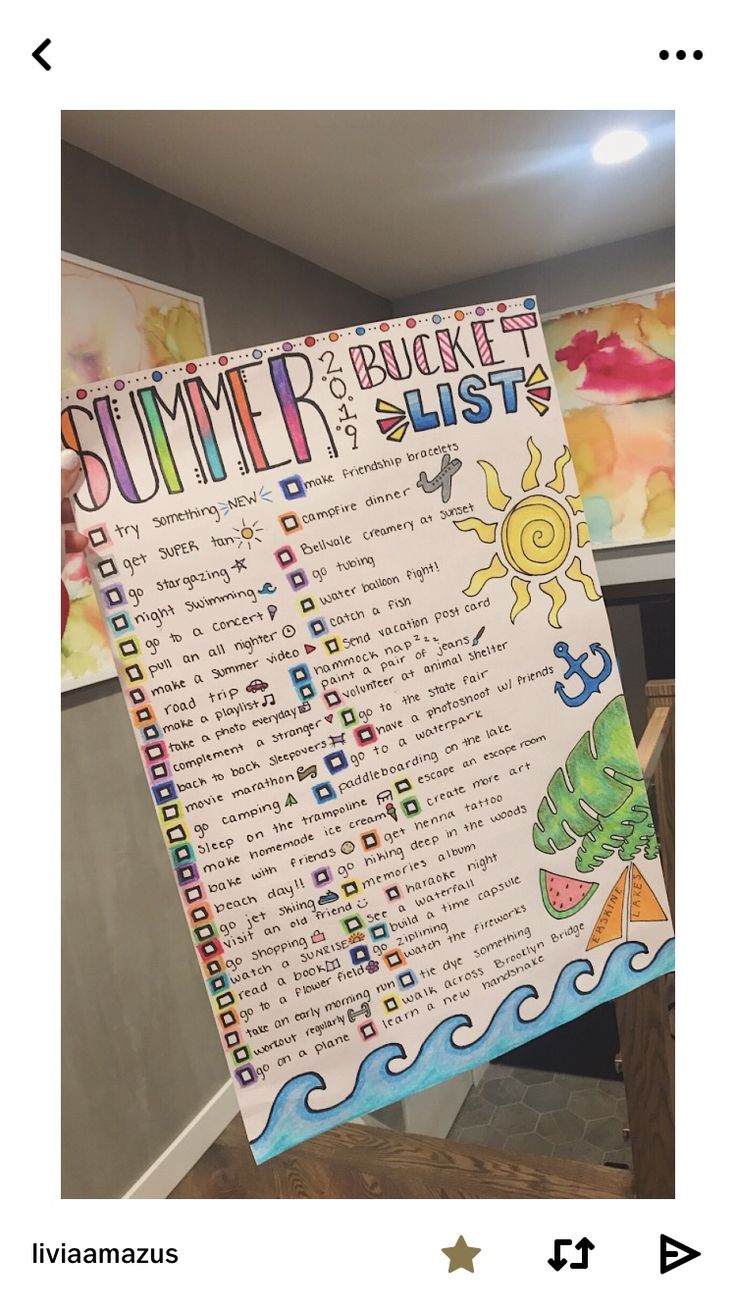 SUMMER
2.0.1.9
BUCKET
LIST
try something NEW
get SUPER tan
go stargazing
night swimming
go to a concert
pull an all nighter
make a summer video
road trip
make a playlist
take a photo everyday
complement a stranger
back to back sleepovers
movie marathon
go camping
sleep on the trampoline
make homemade ice cream
bake with friends
beach day!!
go jet skiing
visit an old friend
go shopping
watch a SUNRISE
read a book
go to a flower field
take an early morning run
workout regularly
go on a plane
make friendship bracelets
campfire dinner
Bellvale creamery at sunset
go tubing
water balloon fight!
catch a fish
send vacation post card
hammock nap z z z
paint a pair of jeans
volunteer at animal shelter
go to the state fair
have a photoshoot w/ friends
go to a waterpark
paddleboarding on the lake
escape an escape room
create more art
get henna tattoo
go hiking deep in the woods
memories album
karaoke night
see a waterfall
build a time capsule
go ziplining
watch the fireworks
tie dye something
walk across Brooklyn Bridge
learn a new handshake
ERSKINE
LAKES
liviaamazus